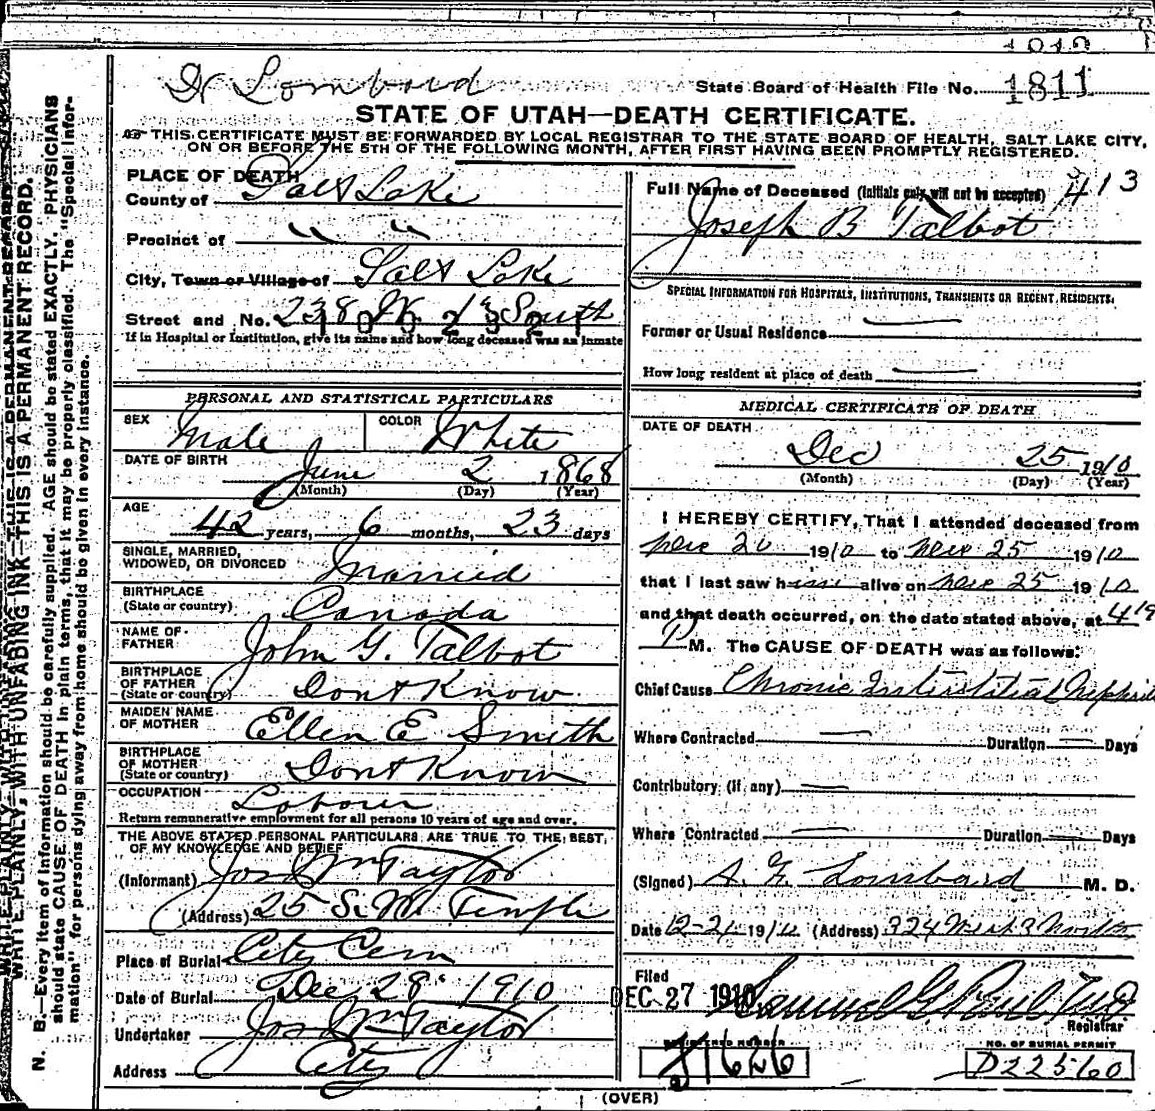 Dr Lombard
State Board of Health File No. 1811
STATE OF UTAH—DEATH CERTIFICATE.
THIS CERTIFICATE MUST BE FORWARDED BY LOCAL REGISTRAR TO THE STATE BOARD OF HEALTH, SALT LAKE CITY,
ON OR BEFORE THE 5TH OF THE FOLLOWING MONTH, AFTER FIRST HAVING BEEN PROMPTLY REGISTERED.
WRITE PLAINLY, WITH UNFADING INK—THIS IS A PERMANENT RECORD.
N. B.—Every item of information should be carefully supplied. AGE should be stated EXACTLY. PHYSICIANS
should state CAUSE OF DEATH in plain terms, that it may be properly classified. The "Special Infor-
mation" for persons dying away from home should be given in every instance.
PLACE OF DEATH
County of Salt Lake
Precinct of " "
City, Town or Village of Salt Lake
Street and No. 238 W. 1st South
If in Hospital or Institution, give its name and how long deceased was an inmate
PERSONAL AND STATISTICAL PARTICULARS
SEX Male COLOR White
DATE OF BIRTH June 2 1868
(Month) (Day) (Year)
AGE
42 years, 6 months, 23 days
SINGLE, MARRIED,
WIDOWED, OR DIVORCED Married
BIRTHPLACE
(State or country) Canada
NAME OF
FATHER John G. Talbot
BIRTHPLACE
OF FATHER
(State or country) Dont Know
MAIDEN NAME
OF MOTHER Ellen E Smith
BIRTHPLACE
OF MOTHER
(State or country) Dont Know
OCCUPATION Labour
Return remunerative employment for all persons 10 years of age and over.
THE ABOVE STATED PERSONAL PARTICULARS ARE TRUE TO THE BEST
OF MY KNOWLEDGE AND BELIEF
(Informant) Jos Wm Taylor
(Address) 25 S. W. Temple
Place of Burial City Cem
Date of Burial Dec 28 1910
Undertaker Jos Wm Taylor
Address City
413
Full Name of Deceased (Initials only will not be accepted)
Joseph B Talbot
SPECIAL INFORMATION FOR HOSPITALS, INSTITUTIONS, TRANSIENTS OR RECENT RESIDENTS.
Former or Usual Residence
How long resident at place of death
MEDICAL CERTIFICATE OF DEATH
DATE OF DEATH
Dec 25 1910
(Month) (Day) (Year)
I HEREBY CERTIFY, That I attended deceased from
Dec 20 1910 to Dec 25 1910
that I last saw him alive on Dec 25 1910
and that death occurred, on the date stated above, at
P M. The CAUSE OF DEATH was as follows:
Chief Cause Chronic Interstitial Nephritis
Where Contracted Duration Days
Contributory (if any)
Where Contracted Duration Days
(Signed) A. G. Lombard M. D.
Date 1910 (Address) 324
Filed
DEC 27 1910 Samuel G Paul MD
Registrar
REGISTERED NUMBER
J1626
NO. OF BURIAL PERMIT
D22560
(OVER)